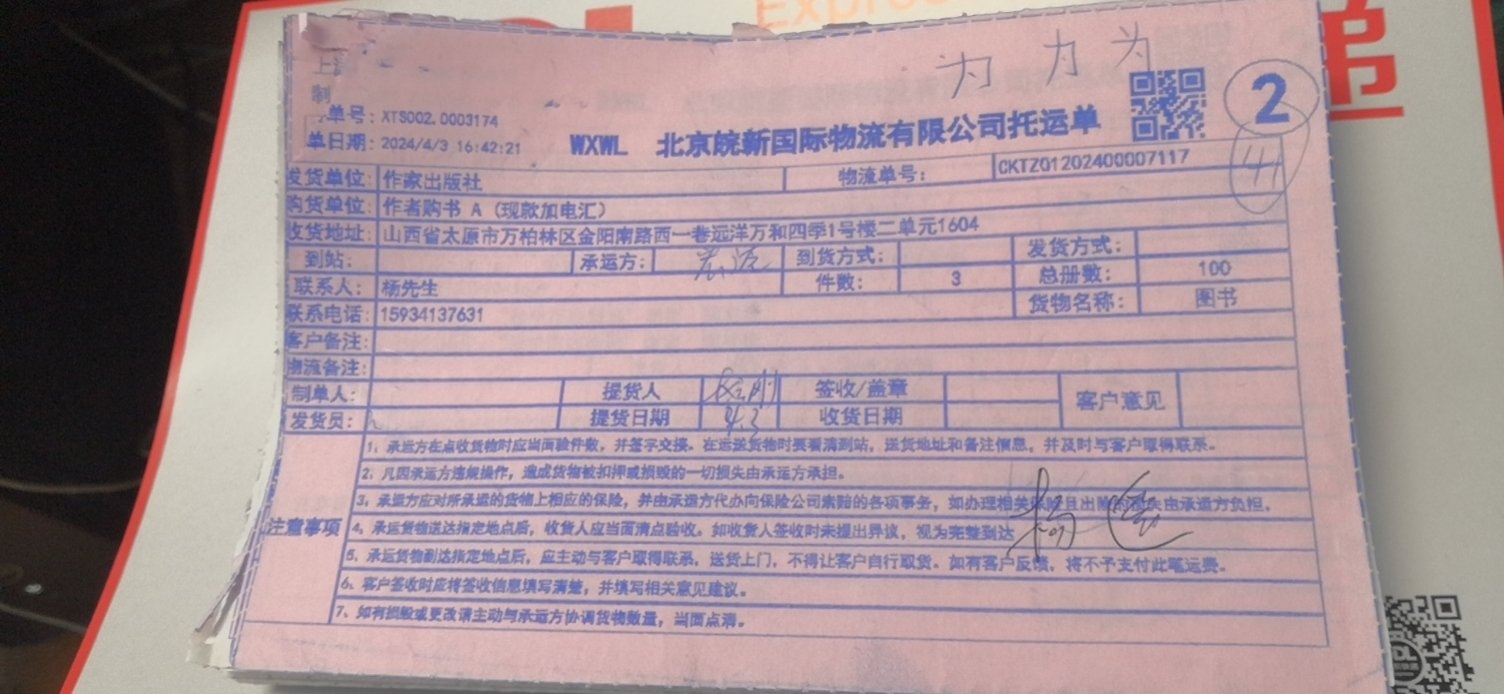 Expre
递
为 力 为
单号: XTS002.0003174
单日期: 2024/4/3 16:42:21
WXWL 北京皖新国际物流有限公司托运单
2
41
发货单位: 作家出版社 物流单号: CKTZ01202400007117
购货单位: 作者购书 A (现款加电汇)
收货地址: 山西省太原市万柏林区金阳南路西一巷远洋万和四季1号楼二单元1604
到站: 承运方: 到货方式: 发货方式:
联系人: 杨先生 件数: 3 总册数: 100
联系电话: 15934137631 货物名称: 图书
客户备注:
物流备注:
制单人: 提货人 签收/盖章 客户意见
发货员: 提货日期 4.3 收货日期
注意事项
1、承运方在点收货物时应当面验件数，并签字交接。在运送货物时要看清到站，送货地址和备注信息，并及时与客户取得联系。
2、凡因承运方违规操作，造成货物被扣押或损毁的一切损失由承运方承担。
3、承运方应对所承运的货物上相应的保险，并由承运方代办向保险公司索赔的各项事务，如办理相关 且出险 由承运方负担。
4、承运货物送达指定地点后，收货人应当面清点验收。如收货人签收时未提出异议，视为完整到达
杨
5、承运货物到达指定地点后，应主动与客户取得联系，送货上门，不得让客户自行取货。如有客户反馈，将不予支付此笔运费。
6、客户签收时应将签收信息填写清楚，并填写相关意见建议。
7、如有损毁或更改请主动与承运方协调货物数量，当面点清。